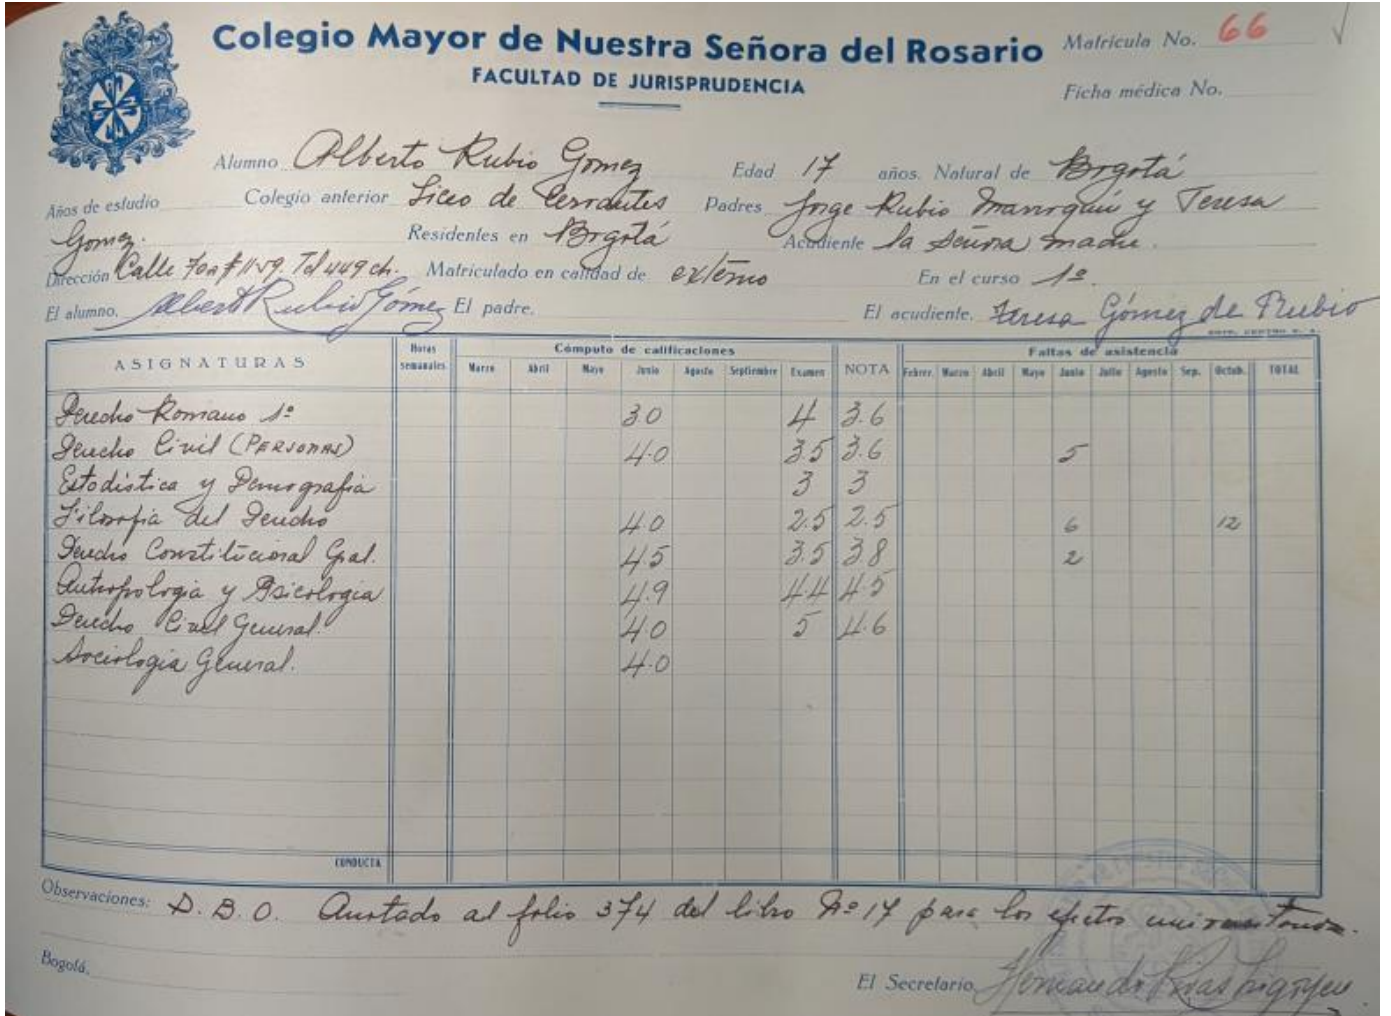 Colegio Mayor de Nuestra Señora del Rosario
FACULTAD DE JURISPRUDENCIA
Matrícula No. 66
Ficha médica No.
Alumno Alberto Rubio Gomez Edad 17 años. Natural de Bogotá
Años de estudio Colegio anterior Liceo de Cervantes Padres Jorge Rubio Marroquín y Teresa
Gomez. Residentes en Bogotá Acudiente la señora madre.
Dirección Calle 70a # 11-59. Tel 449 ch. Matriculado en calidad de externo En el curso 1º
El alumno, Alberto Rubio Gómez El padre, El acudiente, Teresa Gómez de Rubio
ASIGNATURAS Horas semanales Cómputo de calificaciones NOTA Faltas de asistencia TOTAL
Marzo Abril Mayo Junio Agosto Septiembre Examen Febrer. Marzo Abril Mayo Junio Julio Agosto Sep. Octub.
Derecho Romano 1º 3.0 4 3.6
Derecho Civil (PERSONAS) 4.0 3.5 3.6 5
Estadistica y Demografia 3 3
Filosofia del Derecho 4.0 2.5 2.5 6 12
Derecho Constitucional Gral. 4.5 3.5 3.8 2
Antropologia y Psicologia 4.9 4.4 4.5
Derecho Civil General. 4.0 5 4.6
Sociologia General. 4.0
CONDUCTA
Observaciones: D.B.O. Anotado al folio 374 del libro Nº 17 para los efectos
Bogotá,
El Secretario, Hernando